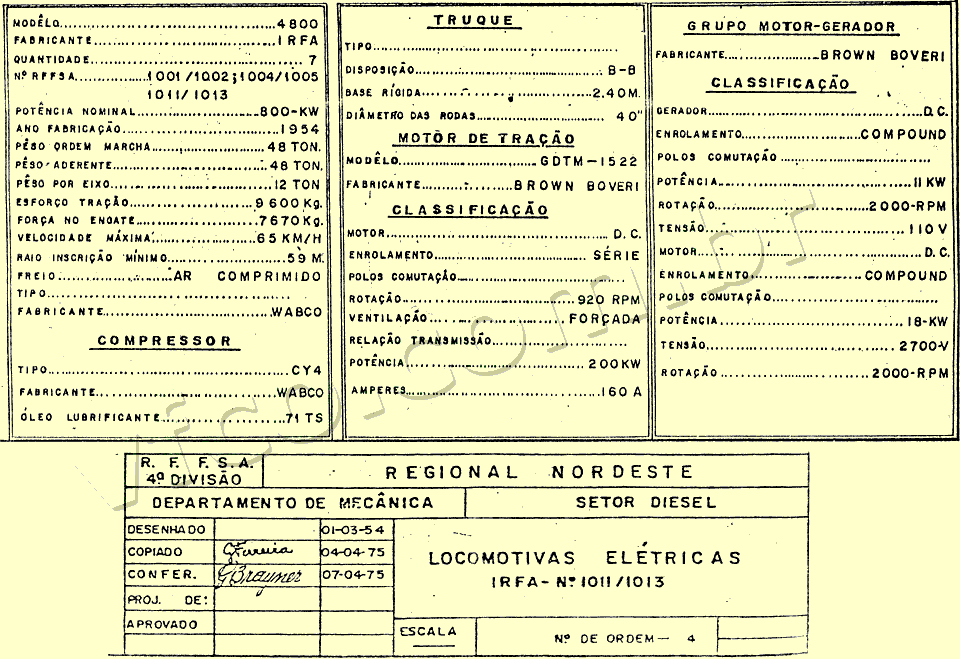 MODÊLO...4800
FABRICANTE...IRFA
QUANTIDADE...7
Nº RFFSA...1001/1002;1004/1005
1011/1013
POTÊNCIA NOMINAL...800-KW
ANO FABRICAÇÃO...1954
PÊSO ORDEM MARCHA...48 TON.
PÊSO ADERENTE...48 TON.
PÊSO POR EIXO...12 TON
ESFORÇO TRAÇÃO...9600Kg.
FORÇA NO ENGATE...7670Kg.
VELOCIDADE MÁXIMA...65 KM/H
RAIO INSCRIÇÃO MÍNIMO...59 M.
FREIO...AR COMPRIMIDO
TIPO...
FABRICANTE...WABCO
COMPRESSOR
TIPO...CY4
FABRICANTE...WABCO
ÓLEO LUBRIFICANTE...71 TS
TRUQUE
TIPO...
DISPOSIÇÃO...B-B
BASE RÍGIDA...2,40M.
DIÂMETRO DAS RODAS...40"
MOTÔR DE TRAÇÃO
MODÊLO...GDTM-1522
FABRICANTE...BROWN BOVERI
CLASSIFICAÇÃO
MOTOR...D.C.
ENROLAMENTO...SÉRIE
POLOS COMUTAÇÃO...
ROTAÇÃO...920 RPM
VENTILAÇÃO...FORÇADA
RELAÇÃO TRANSMISSÃO...
POTÊNCIA...200KW
AMPERES...160 A
GRUPO MOTOR-GERADOR
FABRICANTE...BROWN BOVERI
CLASSIFICAÇÃO
GERADOR...D.C.
ENROLAMENTO...COMPOUND
POLOS COMUTAÇÃO...
POTÊNCIA...11KW
ROTAÇÃO...2000-RPM
TENSÃO...110V
MOTOR...D.C.
ENROLAMENTO...COMPOUND
POLOS COMUTAÇÃO...
POTÊNCIA...18-KW
TENSÃO...2700-V
ROTAÇÃO...2000-RPM
R. F. F. S.A.
4ª DIVISÃO
REGIONAL NORDESTE
DEPARTAMENTO DE MECÂNICA
SETOR DIESEL
DESENHADO 01-03-54
COPIADO 04-04-75
CONFER. GBrayner 07-04-75
PROJ. DE:
APROVADO
LOCOMOTIVAS ELÉTRICAS
IRFA-Nº1011/1013
ESCALA
Nº DE ORDEM- 4
vfco.com.br